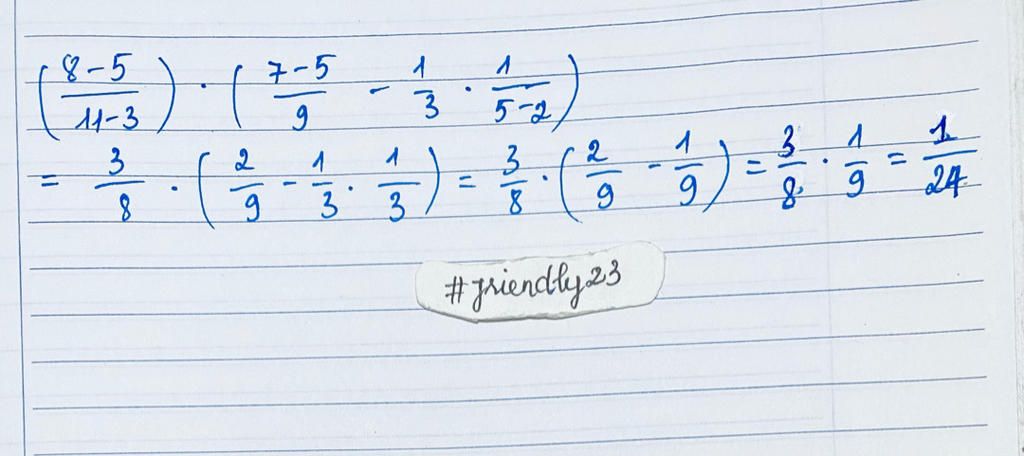 (8-5/11-3) · (7-5/9 - 1/3 · 1/5-2)
= 3/8 · (2/9 - 1/3 · 1/3) = 3/8 · (2/9 - 1/9) = 3/8 · 1/9 = 1/24
#friendly23